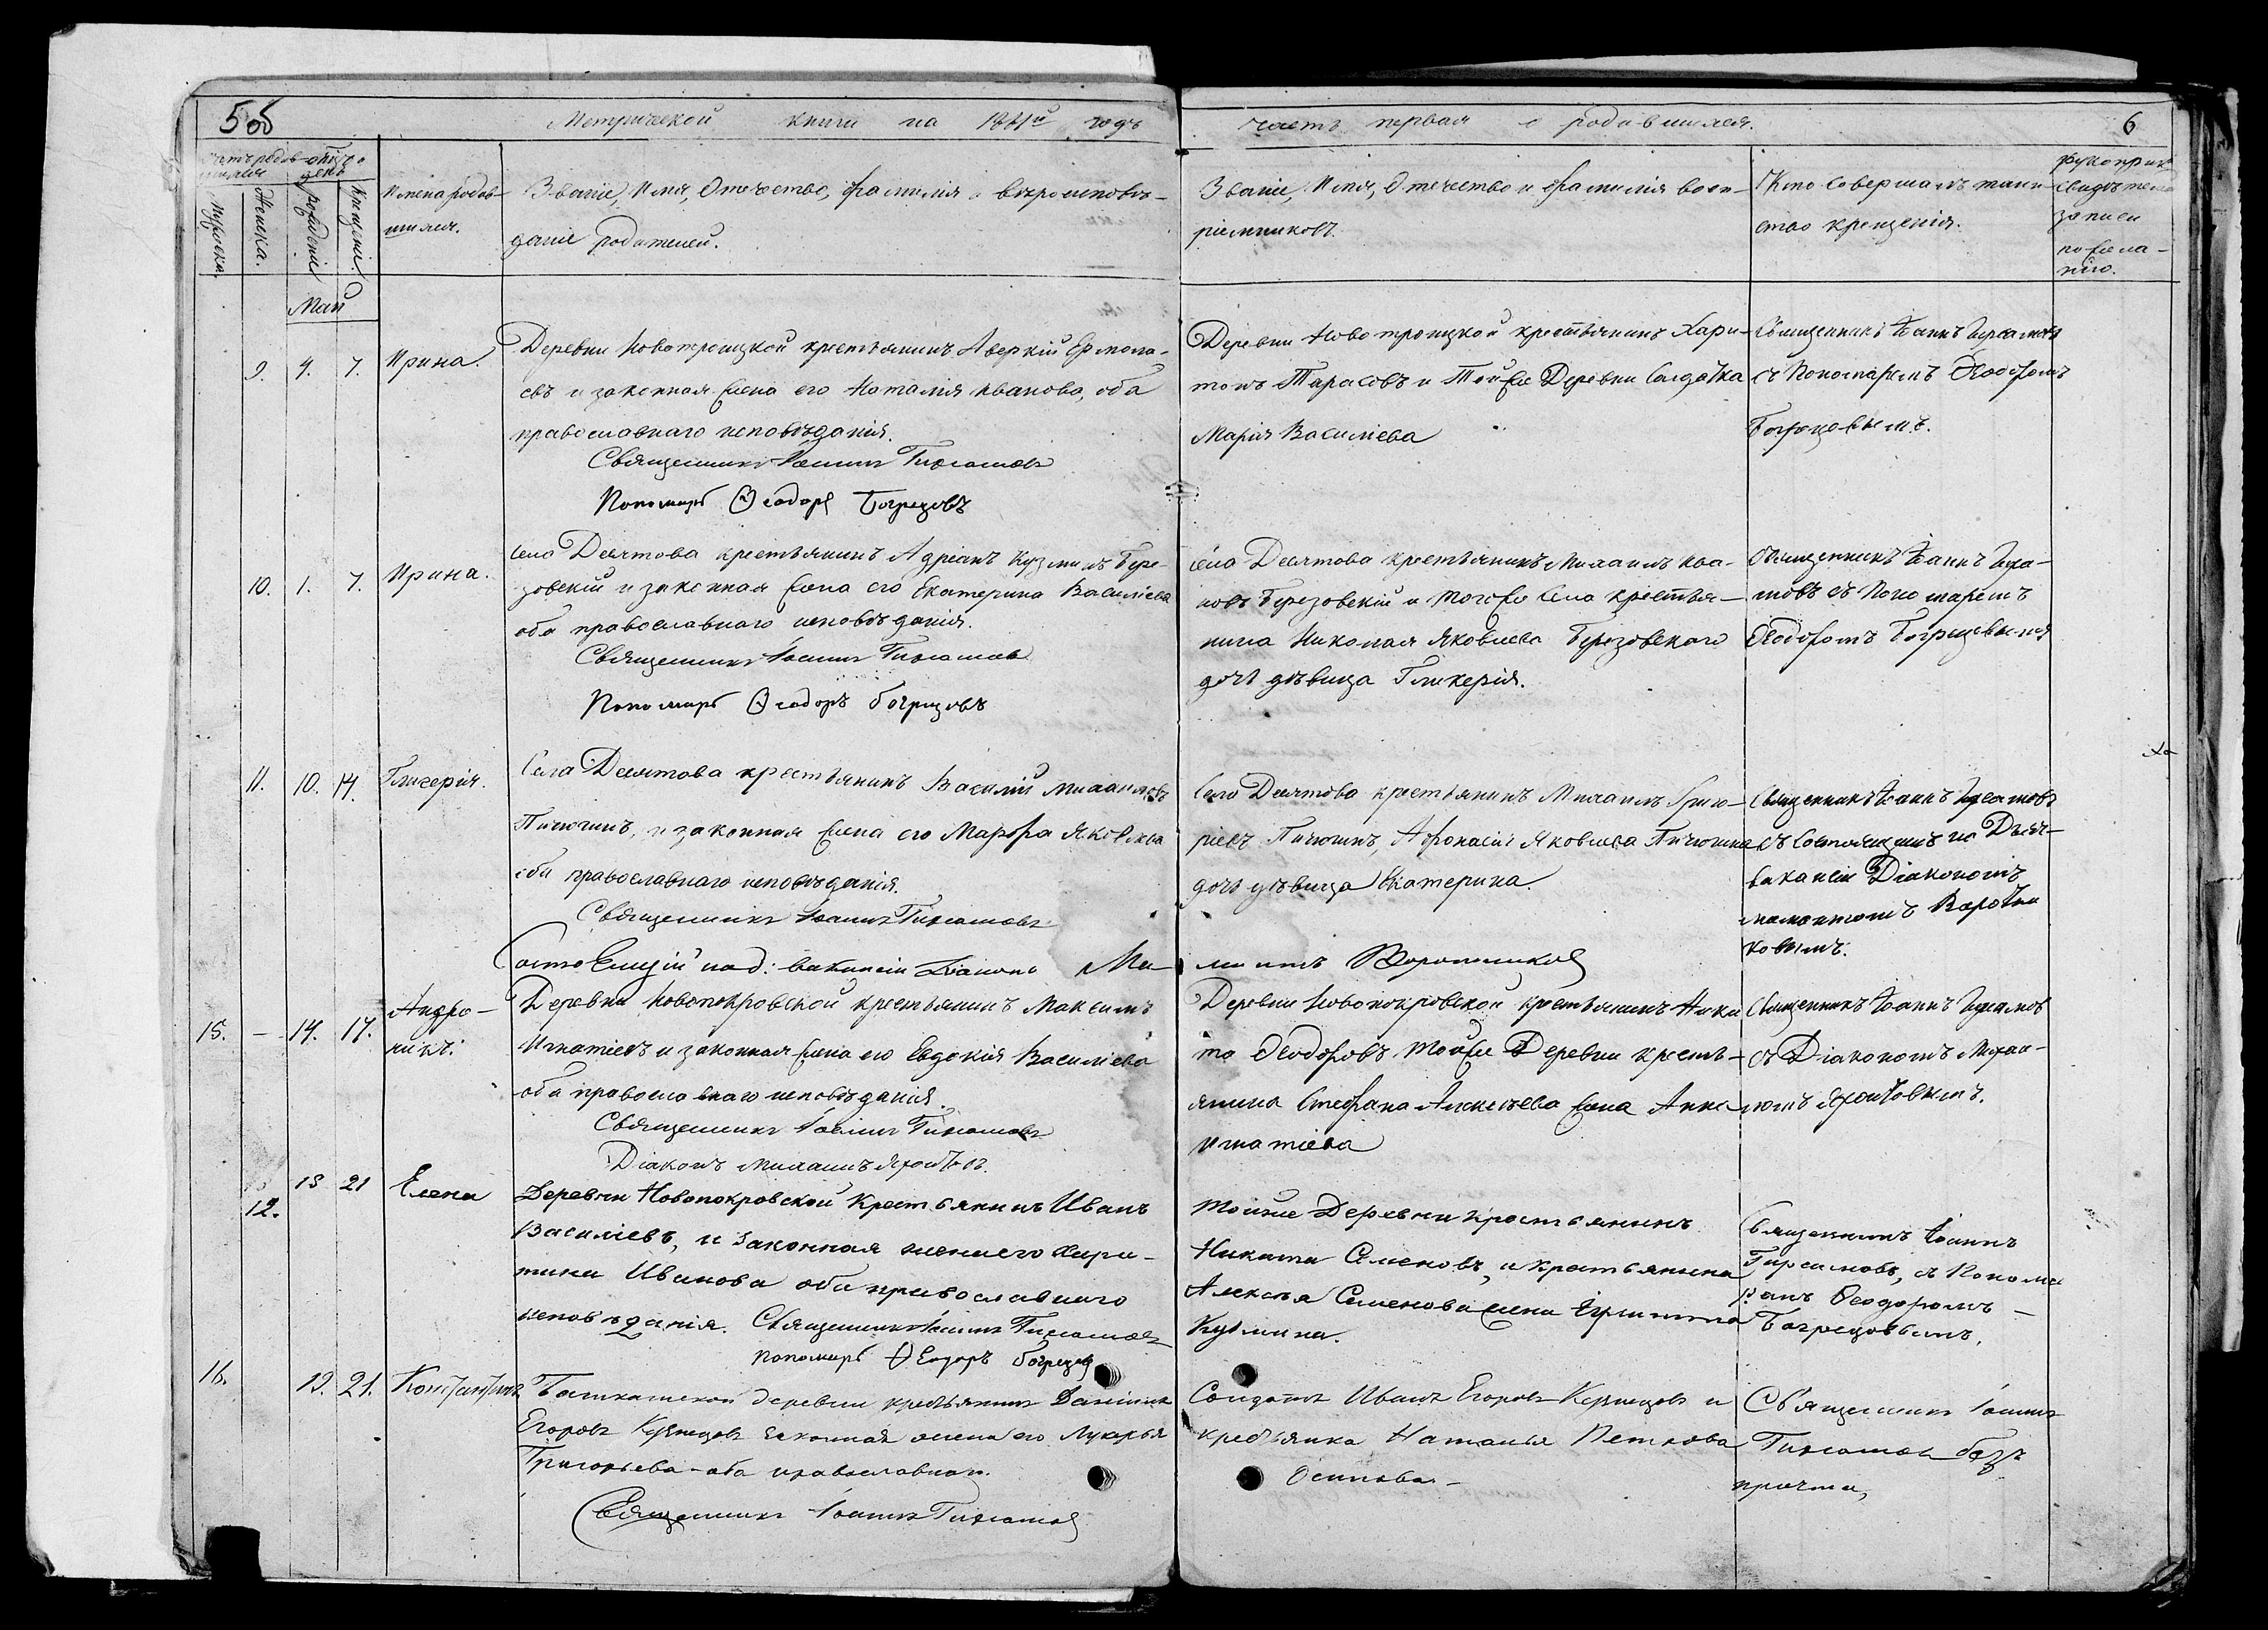 5 об
Метрической книги на 1881й годъ
часть первая о родившихся.
6
Счетъ родив-
шихся
день
Мужеска.
Женска.
Рожденія
Крещенія
Имена родив-
шихся.
Званіе, Имя, Отечество, фамилія и вѣроисповѣ-
даніе родителей.
Званіе, Имя, Отечество и фамилія восп-
ріемниковъ.
Кто совершалъ таин-
ство крещенія.
Рукоприк
свидѣтеле
записи
по жела-
нію.
Май
9. 4. 7. Ирина.
Деревни Новотроицкой крестьянинъ Аверкій Ермола-
евъ и законная жена его Наталія Иванова, оба
православнаго исповѣданія.
Священникъ Іоаннъ
Пономарь Ѳеодоръ Богрецовъ
Деревни Новотроицкой крестьянинъ Хари-
тонъ Тарасовъ и Тойже Деревни Солдатка
Марія Василіева
Священникъ Іоаннъ
съ Пономаремъ Ѳеодоромъ
Богрецовымъ.
10. 1. 7. Ирина.
Села Десятова крестьянинъ Адріанъ Кузминъ Бере-
зовскій и законная жена его Екатерина Василіева
оба православнаго исповѣданія.
Священникъ Іоаннъ
Пономарь Ѳеодоръ Богрецовъ
Села Десятова крестьянинъ Михаилъ Ива-
новъ Березовскій и тогоже села крестья-
нина Николая Яковлева Березовскаго
дочь дѣвица Гликерія.
Священникъ Іоаннъ
съ Пономаремъ
Ѳеодоромъ Богрецовымъ
11. 10. 14. Гликерія.
Села Десятова крестьянинъ Василій Михаиловъ
Пичюгинъ, и законная жена его Марѳа Яковлева
оба православнаго исповѣданія.
Священникъ Іоаннъ
Состоящій на д: вакансіи Діаконъ Ма-
Села Десятова крестьянинъ Михаилъ Григо-
ріевъ Пичюгинъ, Афонасія Яковлева Пичюгина
дочь дѣвица Екатерина.
Священникъ Іоаннъ
съ Состоящимъ на Дьяч-
вакансіи Діакономъ
Мамонтомъ Воротни
ковымъ.
монтъ Воротниковъ
15. — 14. 17. Андро-
никъ.
Деревни Новопокровской крестьянинъ Максимъ
Игнатіевъ и законная жена его Евдокія Василіева
оба православнаго исповѣданія.
Священникъ Іоаннъ
Діаконъ Михаилъ
Деревни Новопокровской крестьянинъ Ники
та Ѳеодоровъ тойже Деревни кресть-
янина Стефана Алексѣева жена Анна
Игнатіева
Священникъ Іоаннъ
съ Діакономъ Михаи-
ломъ
12. 15 21 Елена
Деревни Новопокровской Крестьянинъ Иванъ
Василіевъ, и законная жена его Хари-
тина Иванова оба православнаго
исповѣданія. Священникъ Іоаннъ
пономарь Ѳеодоръ Богрецов
Тойже Деревни крестьянинъ
Никита Семеновъ, и крестьянина
Алексѣя Семенова жена
Кузмина.
Священникъ Іоаннъ
съ Понома
ремъ Ѳеодоромъ —
Богрецовымъ.
16. 19. 21. Константинъ
деревни крестьянинъ Даніилъ
Егоровъ Кузнецовъ законная жена его Лукерья
Григорьева – оба православнаго.
Священникъ Іоаннъ
Солдатъ Иванъ Егоровъ Кузнецовъ и
крестьянка Наталья Петрова
Осипова –
Священникъ Іоаннъ
безъ
причта,